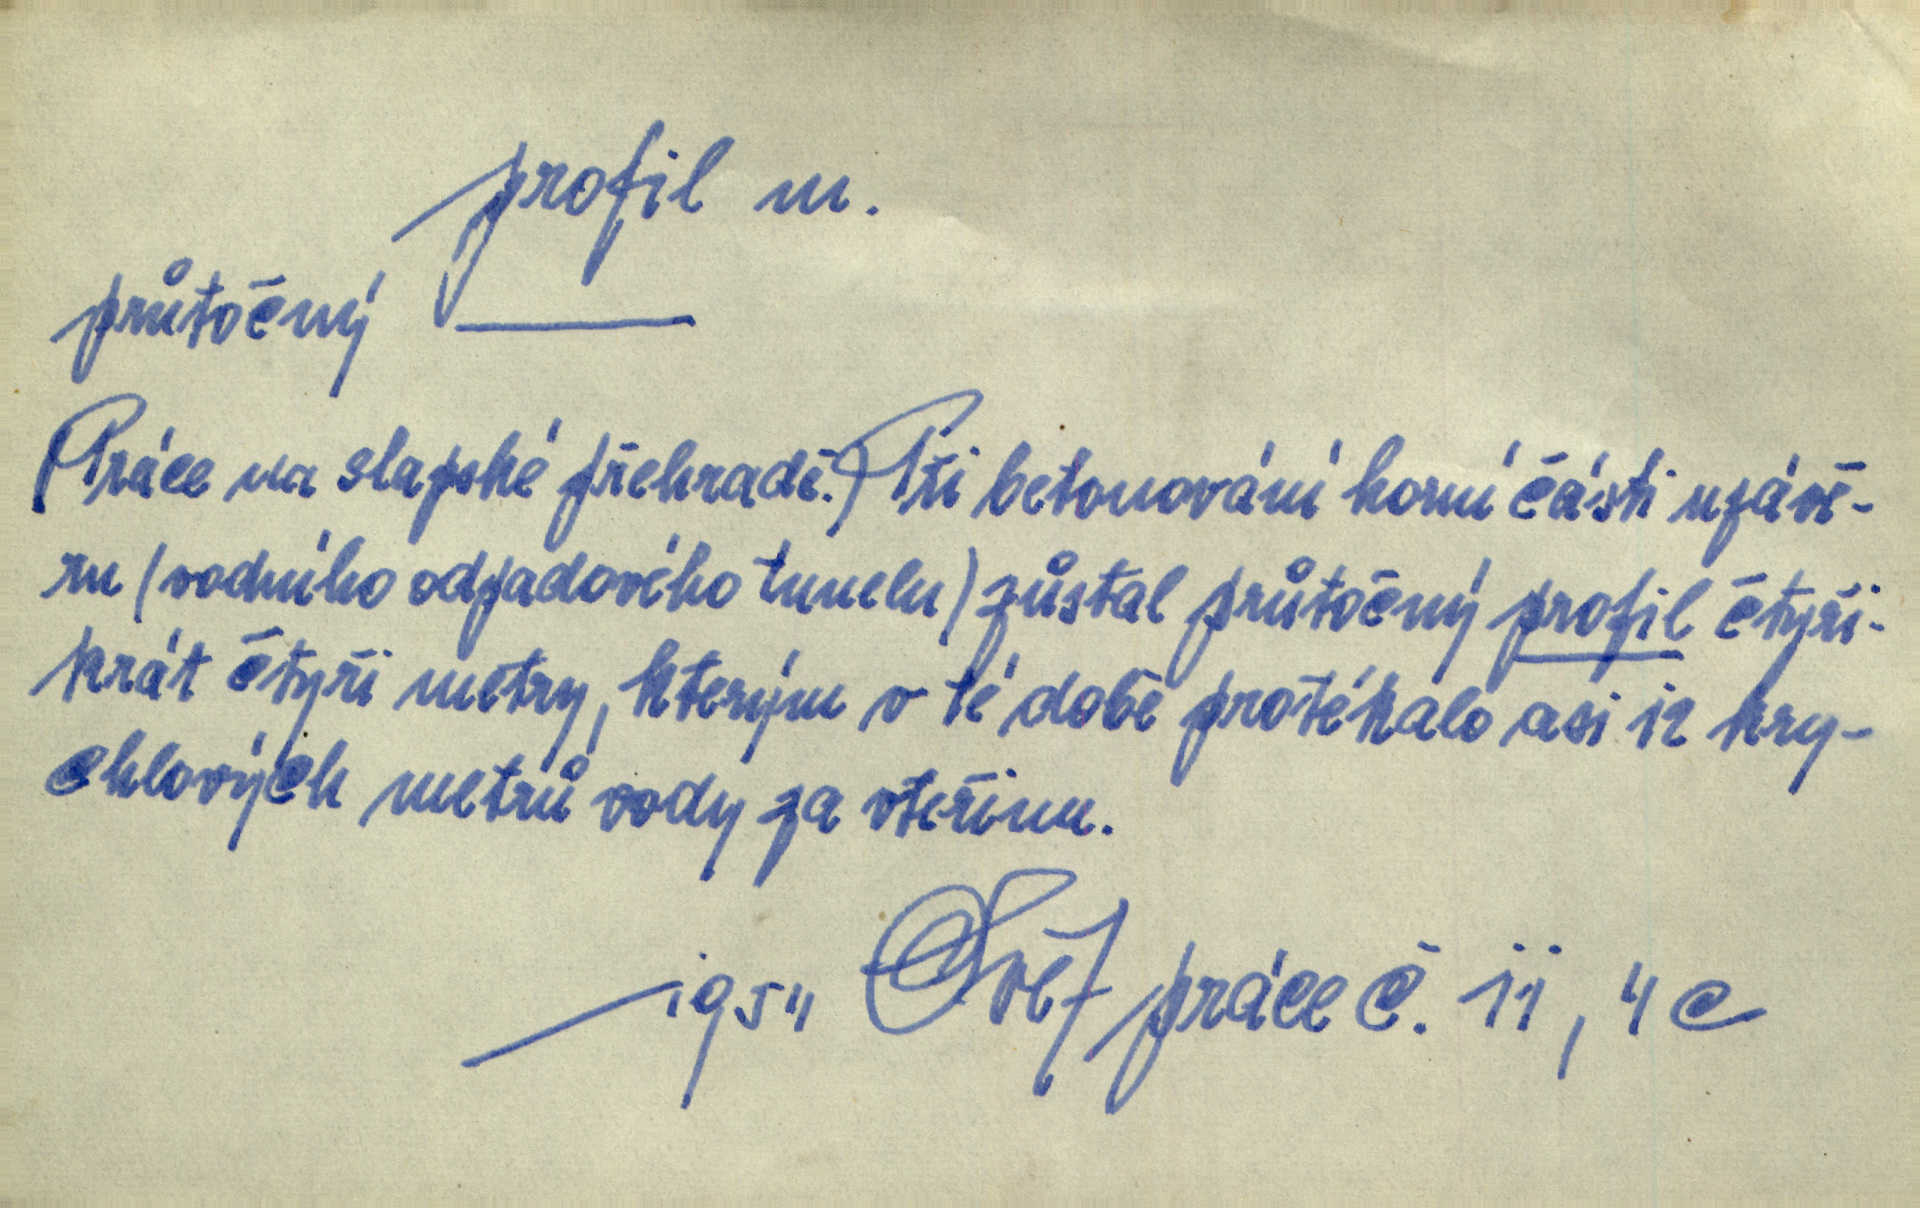 profil m.
průtočný ———
(Práce na slapské přehradě.) Při betonování horní části uzávě-
ru (vodního odpadového tunelu) zůstal průtočný profil čtyři-
krát čtyři metry, kterým v té době protékalo asi 12 kry-
chlových metrů vody za vteřinu.
1954 Svět práce č. 11, 4c